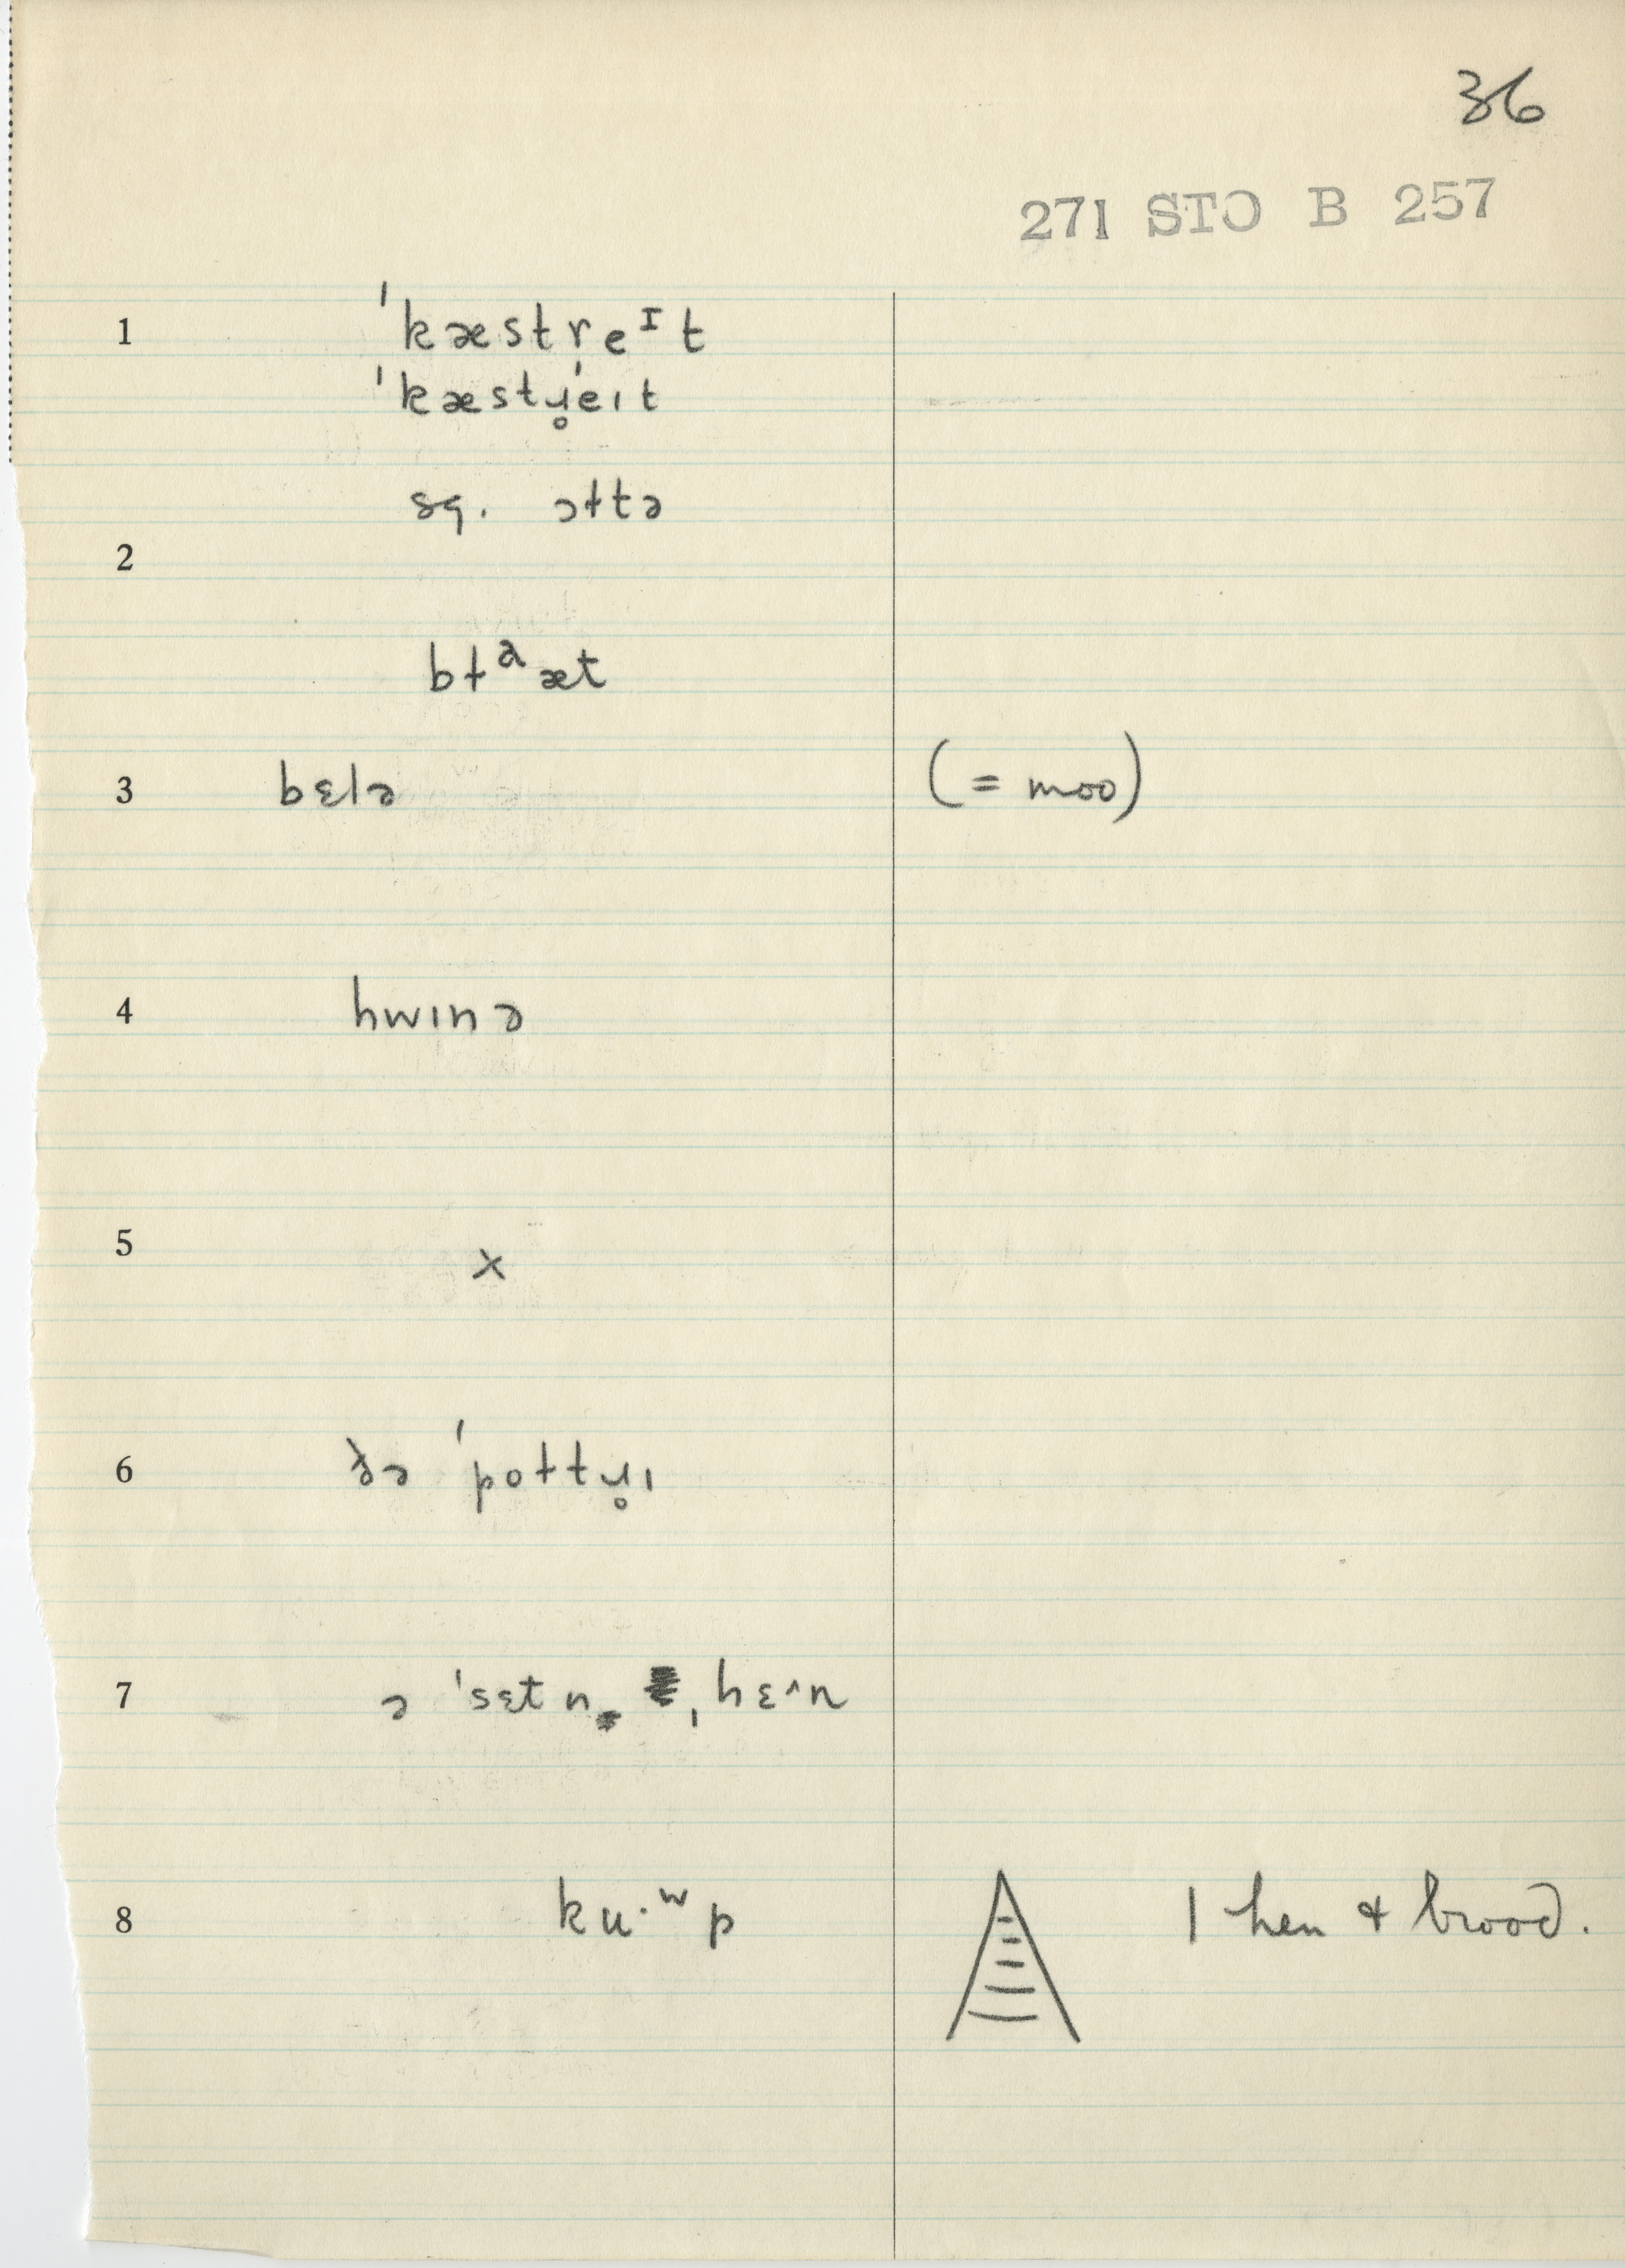 36
271 STO B 257
1 ˈkæstreᴵt
ˈkæstɹ̥eɪt
sq. əɫtə
2
bɫᵊæt
3 bɛlə (= moo)
4 hwɪnə
5 x
6 ðə ˈpoɫtɹ̥ɪ
7 ə ˈsɛtn ˌhɛ^n
8 ku·ʷp 1 hen & brood.